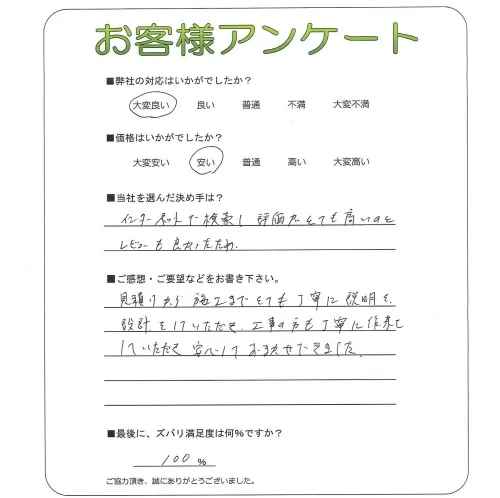 お客様アンケート
■弊社の対応はいかがでしたか?
大変良い 良い 普通 不満 大変不満
■価格はいかがでしたか?
大変安い 安い 普通 高い 大変高い
■当社を選んだ決め手は?
インターネットで検索し評価がとても高いのと
レビューも良かったため.
■ご感想・ご要望などをお書き下さい。
見積りから施工までとても丁寧に説明を、
設計をしていただき、工事の方も丁寧に作業を
していただき安心しておまかせできました.
■最後に、ズバリ満足度は何%ですか?
100 %
ご協力頂き、誠にありがとうございました。